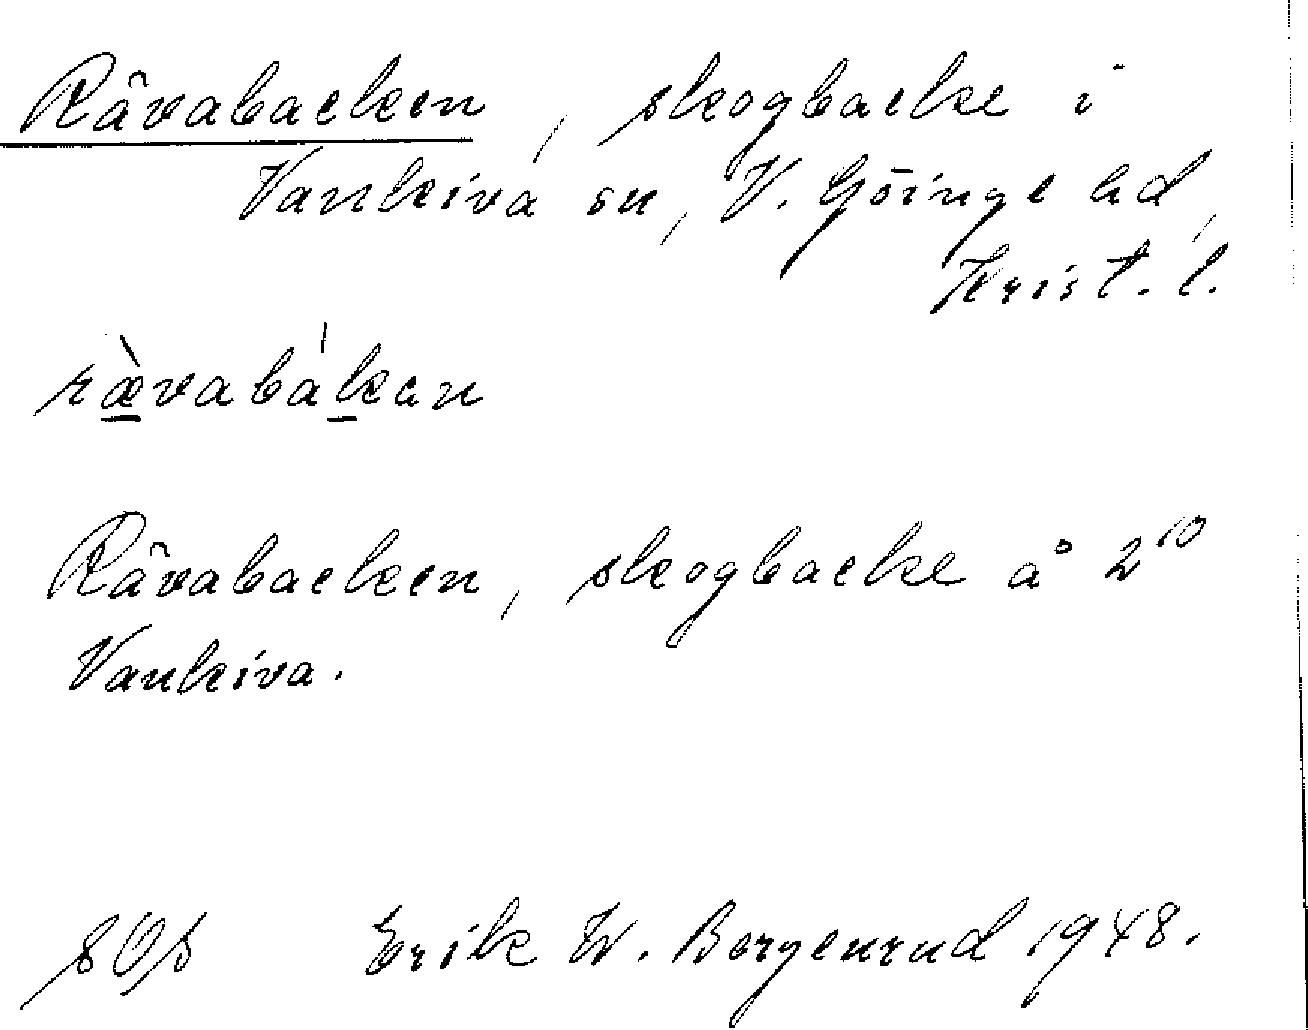 Rävabacken, skogbacke i
Vankiva sn, V. Göinge hd,
Krist. l.
rævabàkan
Rävabacken, skogbacke å 2¹⁰
Vankiva.
Erik W. Borgenrud 1948.